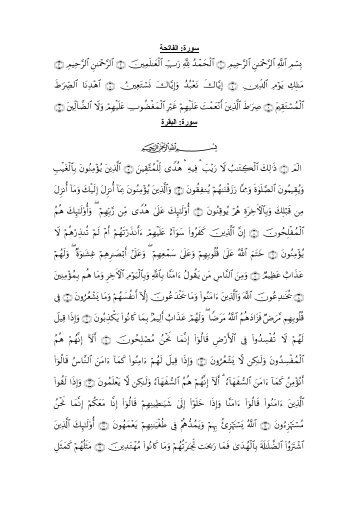 سورة: الفاتحة
بِسْمِ ٱللَّهِ ٱلرَّحْمَٰنِ ٱلرَّحِيمِ ۝ ٱلْحَمْدُ لِلَّهِ رَبِّ ٱلْعَٰلَمِينَ ۝ ٱلرَّحْمَٰنِ ٱلرَّحِيمِ ۝
مَٰلِكِ يَوْمِ ٱلدِّينِ ۝ إِيَّاكَ نَعْبُدُ وَإِيَّاكَ نَسْتَعِينُ ۝ ٱهْدِنَا ٱلصِّرَٰطَ
ٱلْمُسْتَقِيمَ ۝ صِرَٰطَ ٱلَّذِينَ أَنْعَمْتَ عَلَيْهِمْ غَيْرِ ٱلْمَغْضُوبِ عَلَيْهِمْ وَلَا ٱلضَّآلِّينَ ۝
سورة: البقرة
بِسْمِ ٱللَّهِ ٱلرَّحْمَٰنِ ٱلرَّحِيمِ
الٓمٓ ۝ ذَٰلِكَ ٱلْكِتَٰبُ لَا رَيْبَ ۛ فِيهِ ۛ هُدًى لِّلْمُتَّقِينَ ۝ ٱلَّذِينَ يُؤْمِنُونَ بِٱلْغَيْبِ
وَيُقِيمُونَ ٱلصَّلَوٰةَ وَمِمَّا رَزَقْنَٰهُمْ يُنفِقُونَ ۝ وَٱلَّذِينَ يُؤْمِنُونَ بِمَآ أُنزِلَ إِلَيْكَ وَمَآ أُنزِلَ
مِن قَبْلِكَ وَبِٱلْءَاخِرَةِ هُمْ يُوقِنُونَ ۝ أُو۟لَٰٓئِكَ عَلَىٰ هُدًى مِّن رَّبِّهِمْ ۖ وَأُو۟لَٰٓئِكَ هُمُ
ٱلْمُفْلِحُونَ ۝ إِنَّ ٱلَّذِينَ كَفَرُوا۟ سَوَآءٌ عَلَيْهِمْ ءَأَنذَرْتَهُمْ أَمْ لَمْ تُنذِرْهُمْ لَا
يُؤْمِنُونَ ۝ خَتَمَ ٱللَّهُ عَلَىٰ قُلُوبِهِمْ وَعَلَىٰ سَمْعِهِمْ ۖ وَعَلَىٰٓ أَبْصَٰرِهِمْ غِشَٰوَةٌ ۖ وَلَهُمْ
عَذَابٌ عَظِيمٌ ۝ وَمِنَ ٱلنَّاسِ مَن يَقُولُ ءَامَنَّا بِٱللَّهِ وَبِٱلْيَوْمِ ٱلْءَاخِرِ وَمَا هُم بِمُؤْمِنِينَ
۝ يُخَٰدِعُونَ ٱللَّهَ وَٱلَّذِينَ ءَامَنُوا۟ وَمَا يَخْدَعُونَ إِلَّآ أَنفُسَهُمْ وَمَا يَشْعُرُونَ ۝ فِى
قُلُوبِهِم مَّرَضٌ فَزَادَهُمُ ٱللَّهُ مَرَضًا ۖ وَلَهُمْ عَذَابٌ أَلِيمٌۢ بِمَا كَانُوا۟ يَكْذِبُونَ ۝ وَإِذَا قِيلَ
لَهُمْ لَا تُفْسِدُوا۟ فِى ٱلْأَرْضِ قَالُوٓا۟ إِنَّمَا نَحْنُ مُصْلِحُونَ ۝ أَلَآ إِنَّهُمْ هُمُ
ٱلْمُفْسِدُونَ وَلَٰكِن لَّا يَشْعُرُونَ ۝ وَإِذَا قِيلَ لَهُمْ ءَامِنُوا۟ كَمَآ ءَامَنَ ٱلنَّاسُ قَالُوٓا۟
أَنُؤْمِنُ كَمَآ ءَامَنَ ٱلسُّفَهَآءُ ۗ أَلَآ إِنَّهُمْ هُمُ ٱلسُّفَهَآءُ وَلَٰكِن لَّا يَعْلَمُونَ ۝ وَإِذَا لَقُوا۟
ٱلَّذِينَ ءَامَنُوا۟ قَالُوٓا۟ ءَامَنَّا وَإِذَا خَلَوْا۟ إِلَىٰ شَيَٰطِينِهِمْ قَالُوٓا۟ إِنَّا مَعَكُمْ إِنَّمَا نَحْنُ
مُسْتَهْزِءُونَ ۝ ٱللَّهُ يَسْتَهْزِئُ بِهِمْ وَيَمُدُّهُمْ فِى طُغْيَٰنِهِمْ يَعْمَهُونَ ۝ أُو۟لَٰٓئِكَ ٱلَّذِينَ
ٱشْتَرَوُا۟ ٱلضَّلَٰلَةَ بِٱلْهُدَىٰ فَمَا رَبِحَت تِّجَٰرَتُهُمْ وَمَا كَانُوا۟ مُهْتَدِينَ ۝ مَثَلُهُمْ كَمَثَلِ